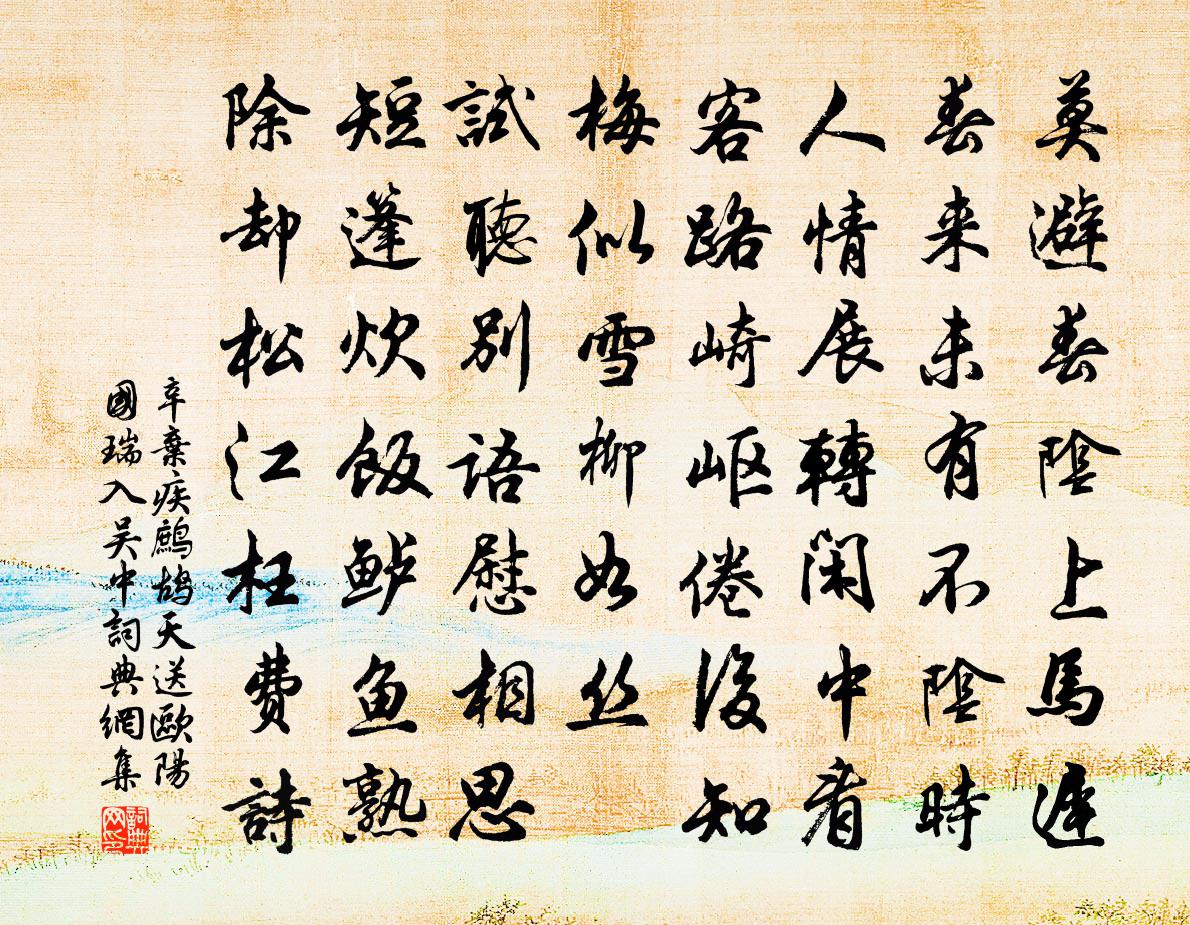 莫避春陰上馬遲
春来未有不陰時
人情展轉閑中看
客路崎岖倦後知
梅似雪柳如丝
試聽别語慰相思
短篷炊飯鲈魚熟
除却松江枉费詩
辛棄疾鷓鴣天送歐陽
國瑞入吴中詞典網集